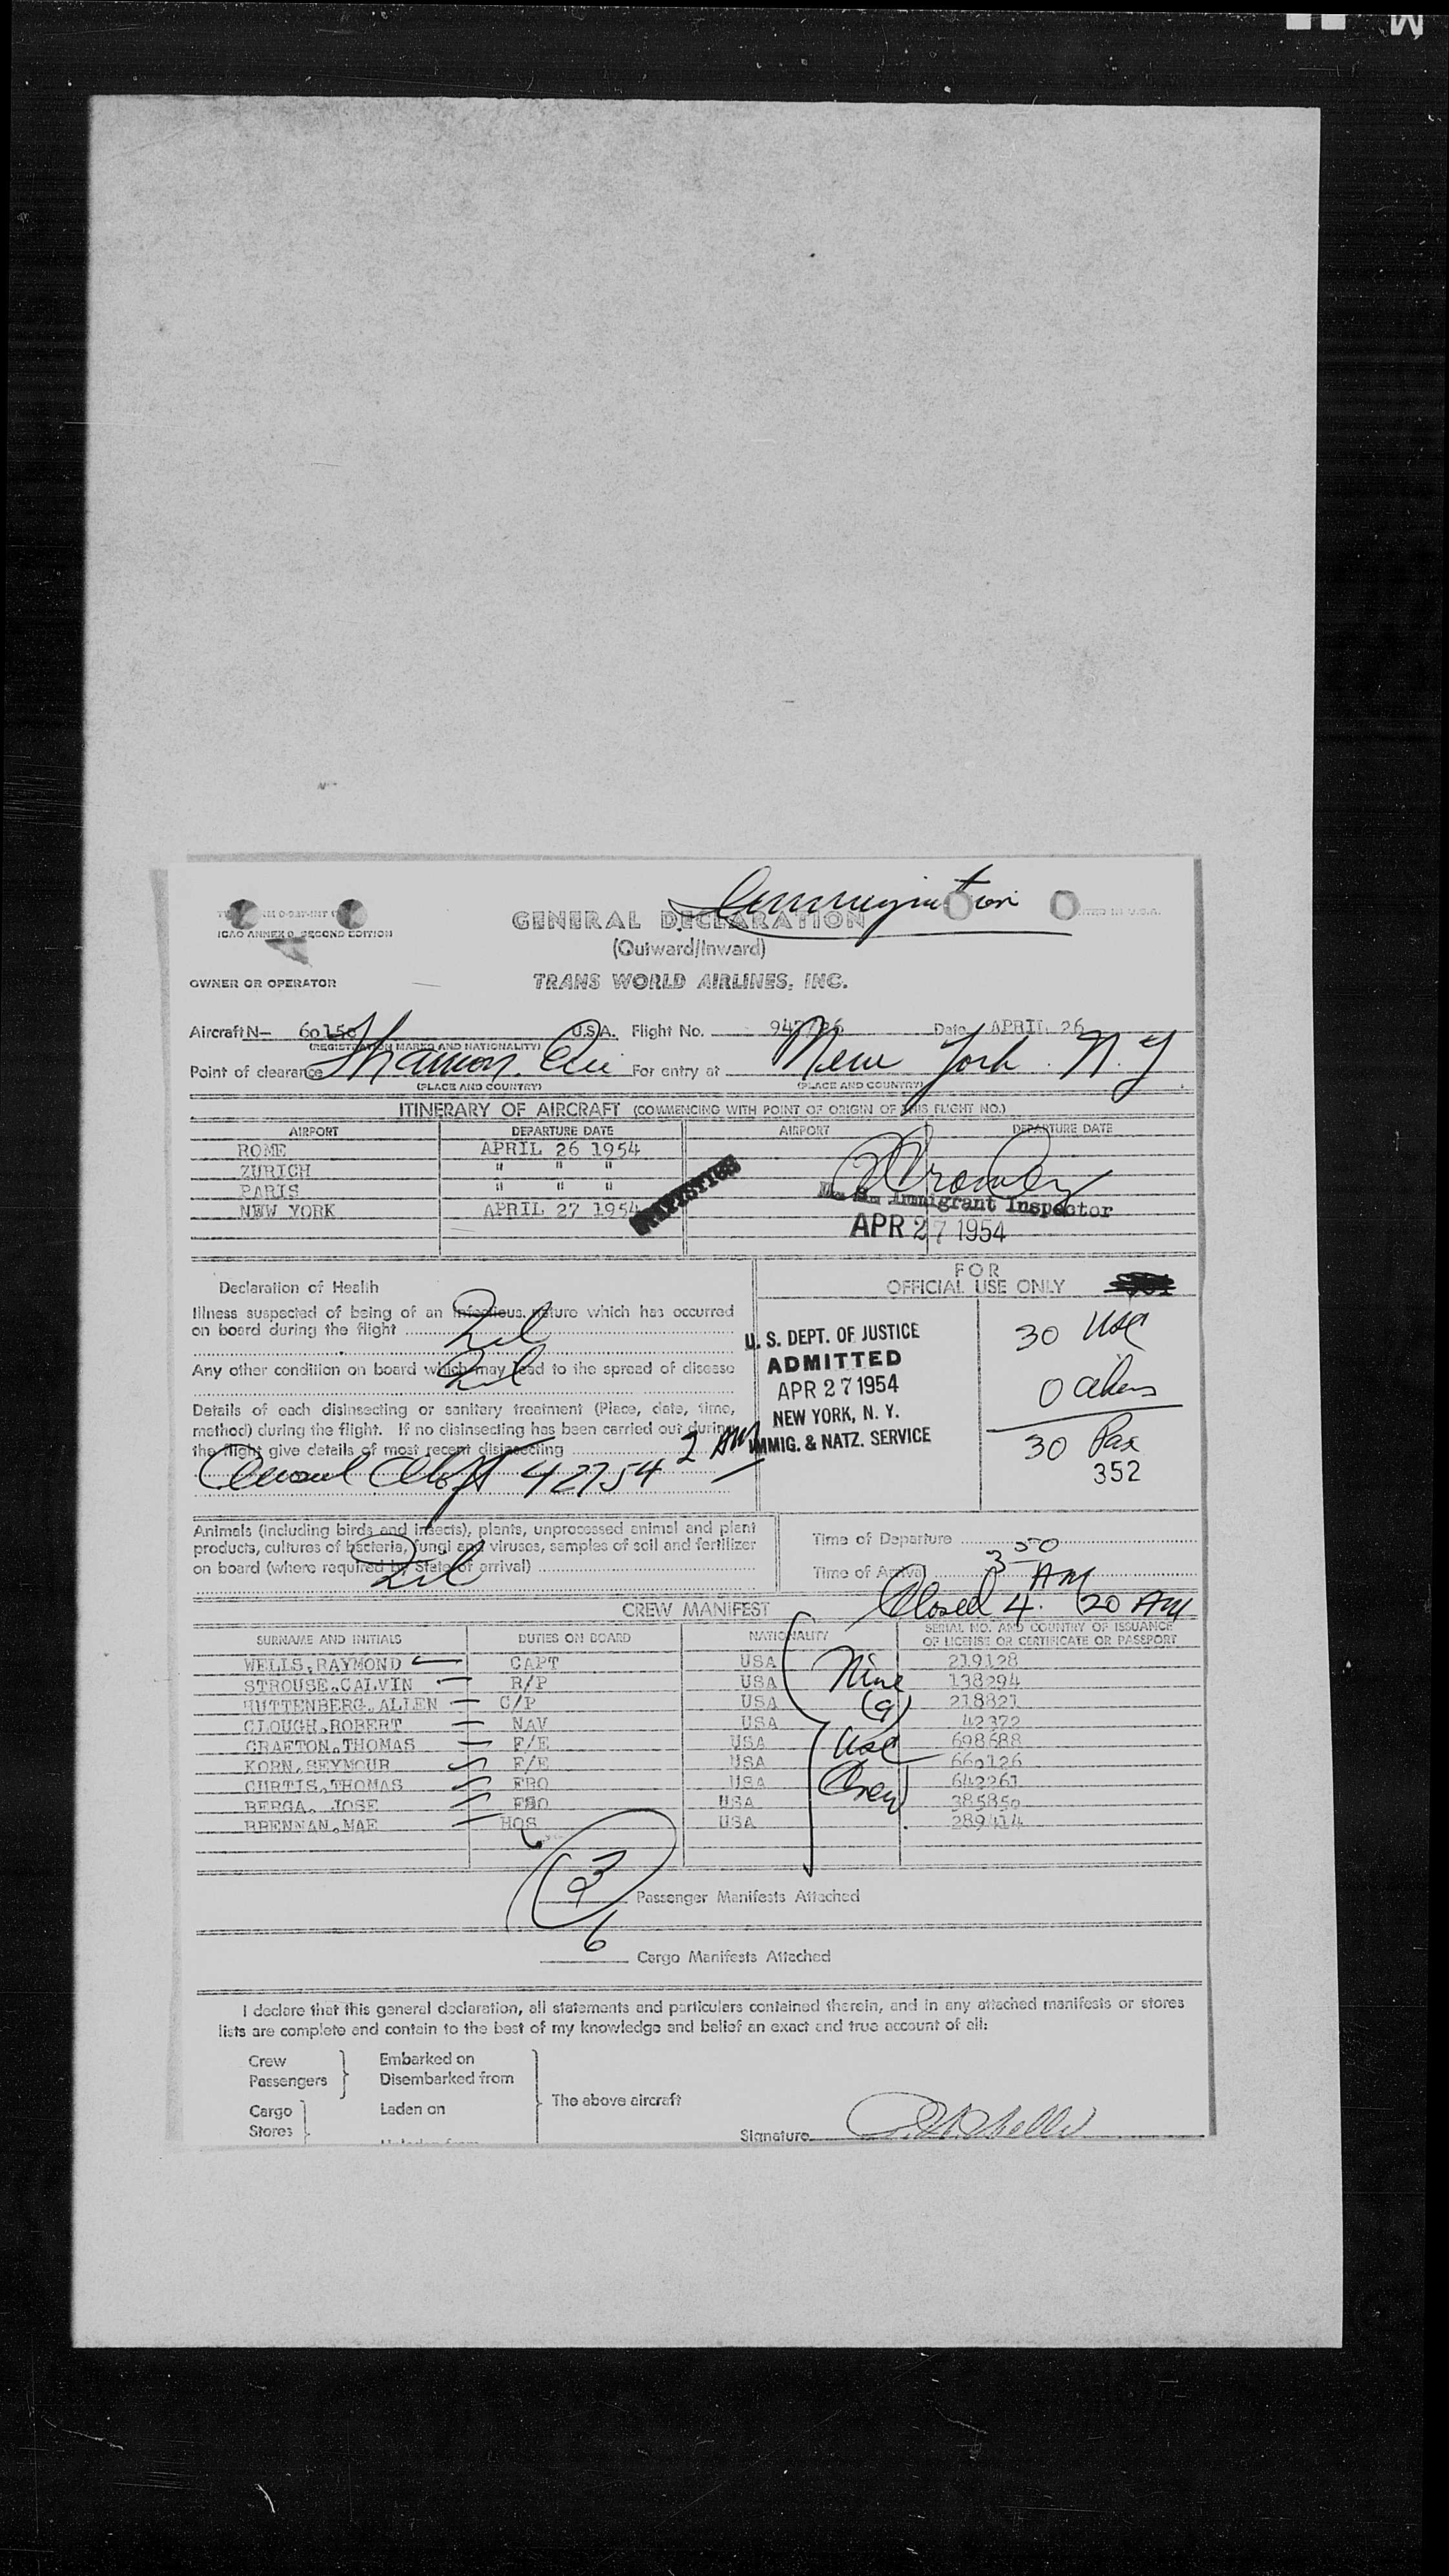 M
Immigration
ICAO ANNEX 9, SECOND EDITION
GENERAL DECLARATION
(Outward/Inward)
OWNER OR OPERATOR
TRANS WORLD AIRLINES, INC.
Aircraft N- 60150 U.S.A. Flight No. Date APRIL 26
(REGISTRATION MARKS AND NATIONALITY)
Point of clearance Shannon. Eire For entry at New York N.Y
(PLACE AND COUNTRY) (PLACE AND COUNTRY)
ITINERARY OF AIRCRAFT (COMMENCING WITH POINT OF ORIGIN OF THIS FLIGHT NO.)
AIRPORT DEPARTURE DATE AIRPORT DEPARTURE DATE
ROME APRIL 26 1954
ZURICH " " "
PARIS " " "
NEW YORK APRIL 27 1954
STATISTICS
U. S. Immigrant Inspector
APR 27 1954
Declaration of Health
Illness suspected of being of an infectious nature which has occurred
on board during the flight Nil
Any other condition on board which may lead to the spread of disease
Nil
Details of each disinsecting or sanitary treatment (Place, date, time,
method) during the flight. If no disinsecting has been carried out during
the flight give details of most recent disinsecting
Aloft 42754 2 AM
FOR
OFFICIAL USE ONLY
U. S. DEPT. OF JUSTICE
ADMITTED
APR 27 1954
NEW YORK, N. Y.
IMMIG. & NATZ. SERVICE
30 USC
0 aliens
30 Pax
352
Animals (including birds and insects), plants, unprocessed animal and plant
products, cultures of bacteria, fungi and viruses, samples of soil and fertilizer
on board (where required by State of arrival)
Nil
Time of Departure
Time of Arrival 3 50 AM
Closed 4. 20 AM
CREW MANIFEST
SURNAME AND INITIALS DUTIES ON BOARD NATIONALITY SERIAL NO. AND COUNTRY OF ISSUANCE
OF LICENSE OR CERTIFICATE OR PASSPORT
WELLS, RAYMOND CAPT USA 219128
STROUSE, CALVIN R/P USA 138294
HUTTENBERG, ALLEN C/P USA 218821
CLOUGH, ROBERT NAV USA 42372
GRAFTON, THOMAS F/E USA 698688
KORN, SEYMOUR F/E USA 660126
CURTIS, THOMAS FRO USA 642261
BERGA, JOSE FSO USA 385850
BRENNAN, MAE HOS USA 289414
Nine
(9)
USC
Crew
3
Passenger Manifests Attached
6
Cargo Manifests Attached
I declare that this general declaration, all statements and particulars contained therein, and in any attached manifests or stores
lists are complete and contain to the best of my knowledge and belief an exact and true account of all:
Crew Embarked on
Passengers Disembarked from
The above aircraft
Cargo Laden on
Stores
Signature